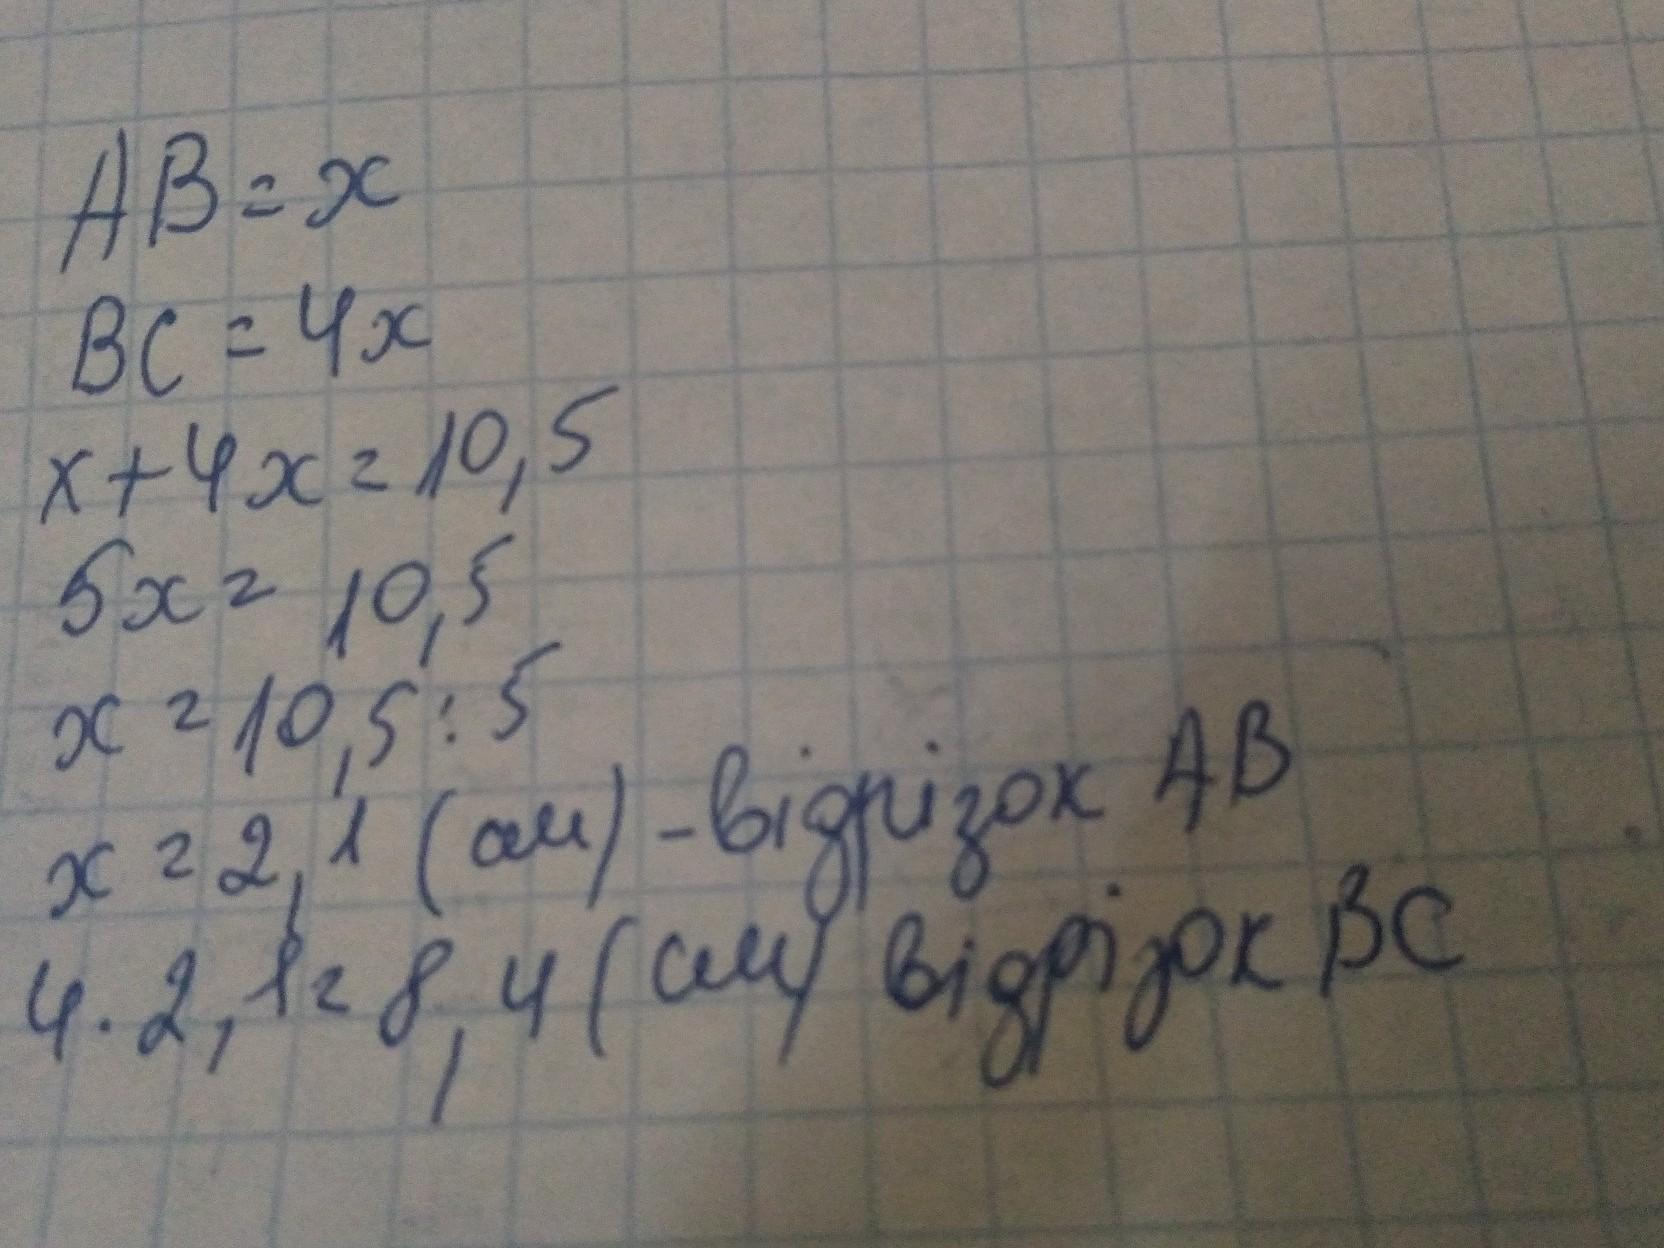 AB = x
BC = 4x
x + 4x = 10,5
5x = 10,5
x = 10,5 : 5
x = 2,1 (см) - відрізок AB
4 . 2,1 = 8,4 (см) відрізок BC